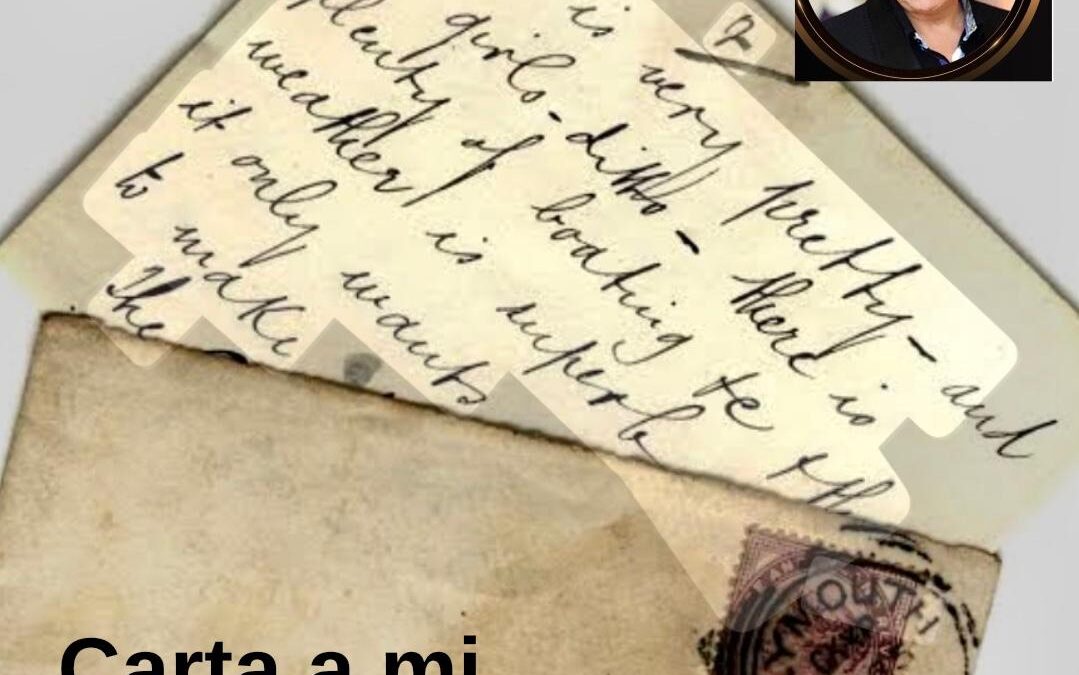 2
is very pretty - and
girls - ditto - there is
plenty of boating
weather is superb
it only wants
to make
The
YMOUTH
Carta a mi